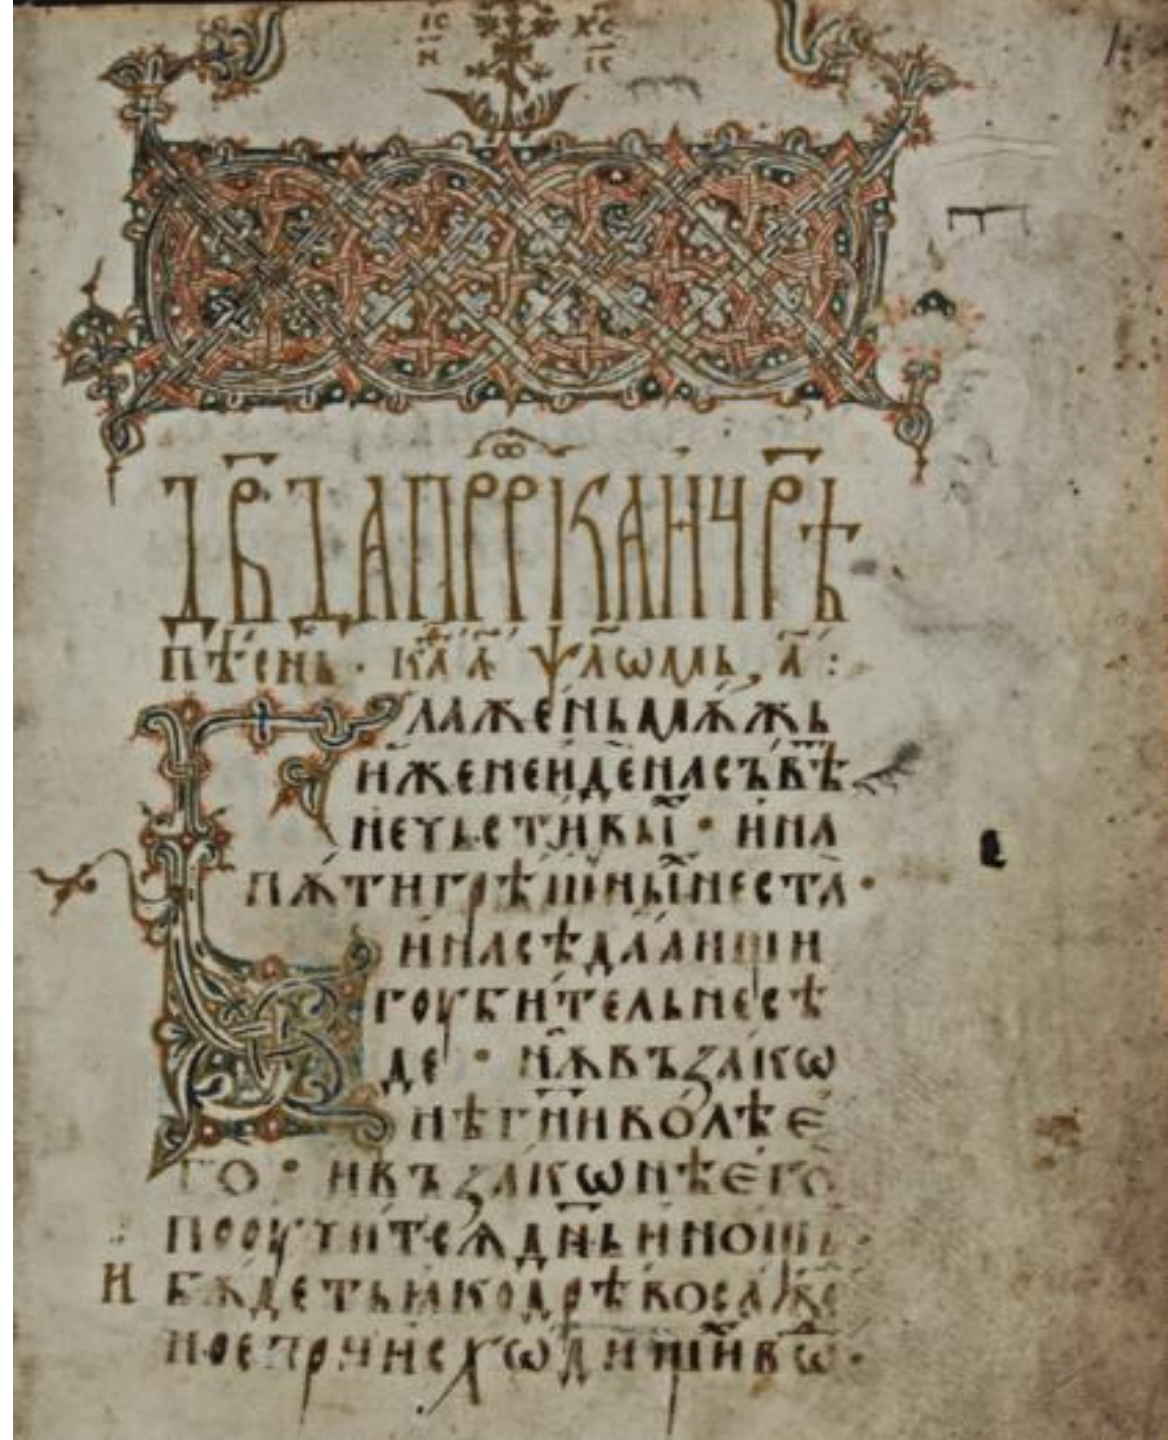 ІС ХС
Н ІС
ДВ҃ДА ПРР҃КА И ЧР҃Ѣ
ПѢ́СНЬ · КА҃А҃ ѰЛ҃ѠМЬ, А҃ :
ЛАЖЕ́НЬ МѪ́ЖЬ
И́ЖЕ НЕ И́ДЕ НА СЪВѢ҃
НЕЧЬСТИ́ВЫ҃И · И НА
ПѪ́ТИ ГРѢ́ШНЫ҃И НЕ СТА̀ ·
И НА СѢДА́ЛИЩИ
ГОУБИ́ТЕЛЬ НЕ СѢ
ДЕ · НѪ ВЪ ЗАКѠ
НѢ ГН҃И ВО́ЛѢ Е́
ГО · И ВЪ ЗАКѠНѢ Е́ГО̀
ПООУЧИ́ТСѦ ДН҃Ь И НОЩЬ ·
И БѪ́ДЕТЬ ІАКО ДРѢ́ВО САЖЕ
НОЕ ПРИ ИСХѠ́ДИЩИ ВѠ҃ ·